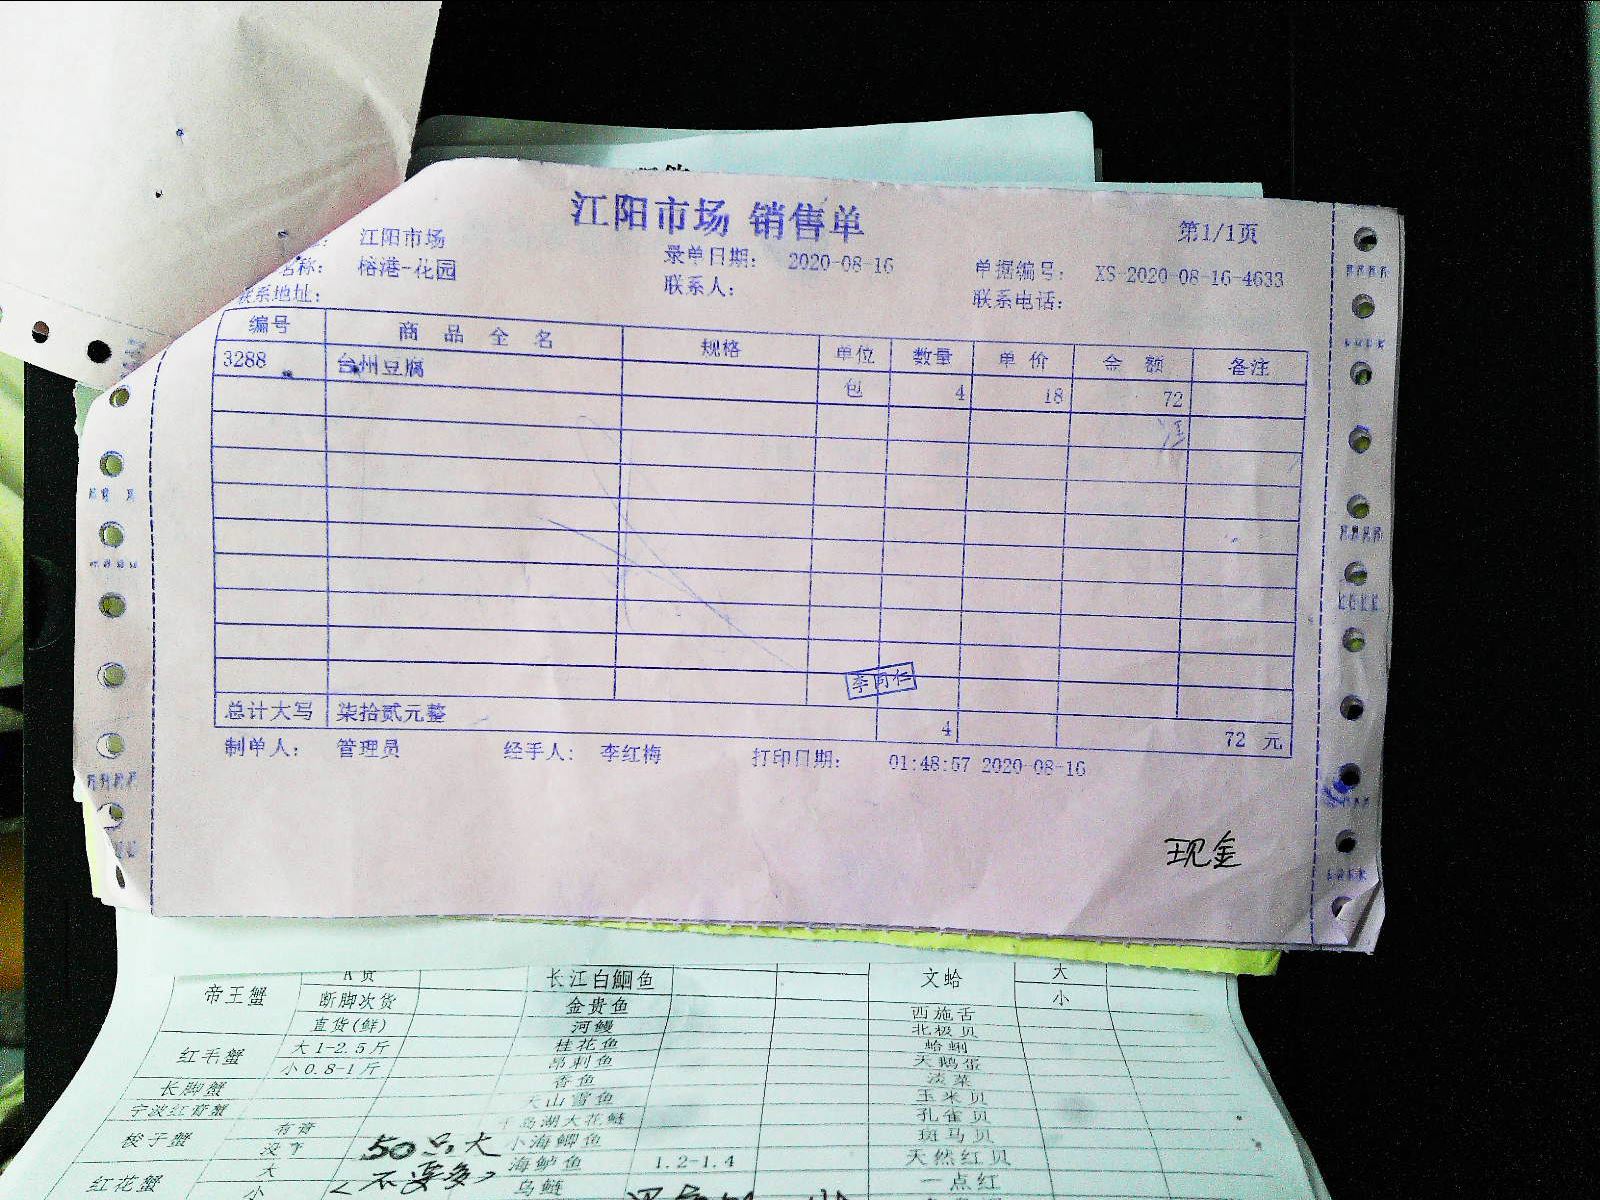 江阳市场 销售单
第1/1页
江阳市场
名称： 榕港-花园 录单日期： 2020-08-16 单据编号： XS-2020-08-16-4633
联系地址： 联系人： 联系电话：
编号 商品全名 规格 单位 数量 单价 金额 备注
3288 台州豆腐 包 4 18 72
李同仁
总计大写 柒拾贰元整 4 72 元
制单人： 管理员 经手人： 李红梅 打印日期： 01:48:57 2020-08-16
现金
帝王蟹 A货 长江白鮰鱼 文蛤 大
断脚次货 金贵鱼 小
直货(鲜) 河鳗 西施舌
红毛蟹 大1-2.5斤 桂花鱼 北极贝
小0.8-1斤 昂刺鱼 蛤蜊
长脚蟹 香鱼 天鹅蛋
宁波红膏蟹 天山雪鱼 淡菜
梭子蟹 有膏 千岛湖大花鲢 玉米贝
没干 50只大 小海鲫鱼 孔雀贝
红花蟹 大 <不要多> 海鲈鱼 1.2-1.4 斑马贝
小 乌鲢 天然红贝
一点红